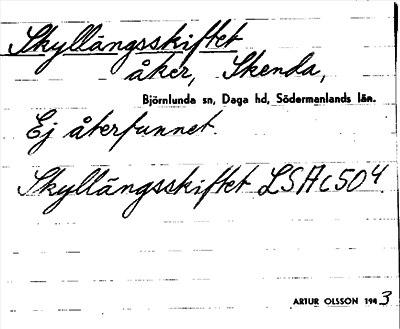 Skyllängsskiftet
åker, Skenda,
Björnlunda sn, Daga hd, Södermanlands län.
Ej återfunnet
Skyllängsskiftet LSA C50⁴
ARTUR OLSSON 1943